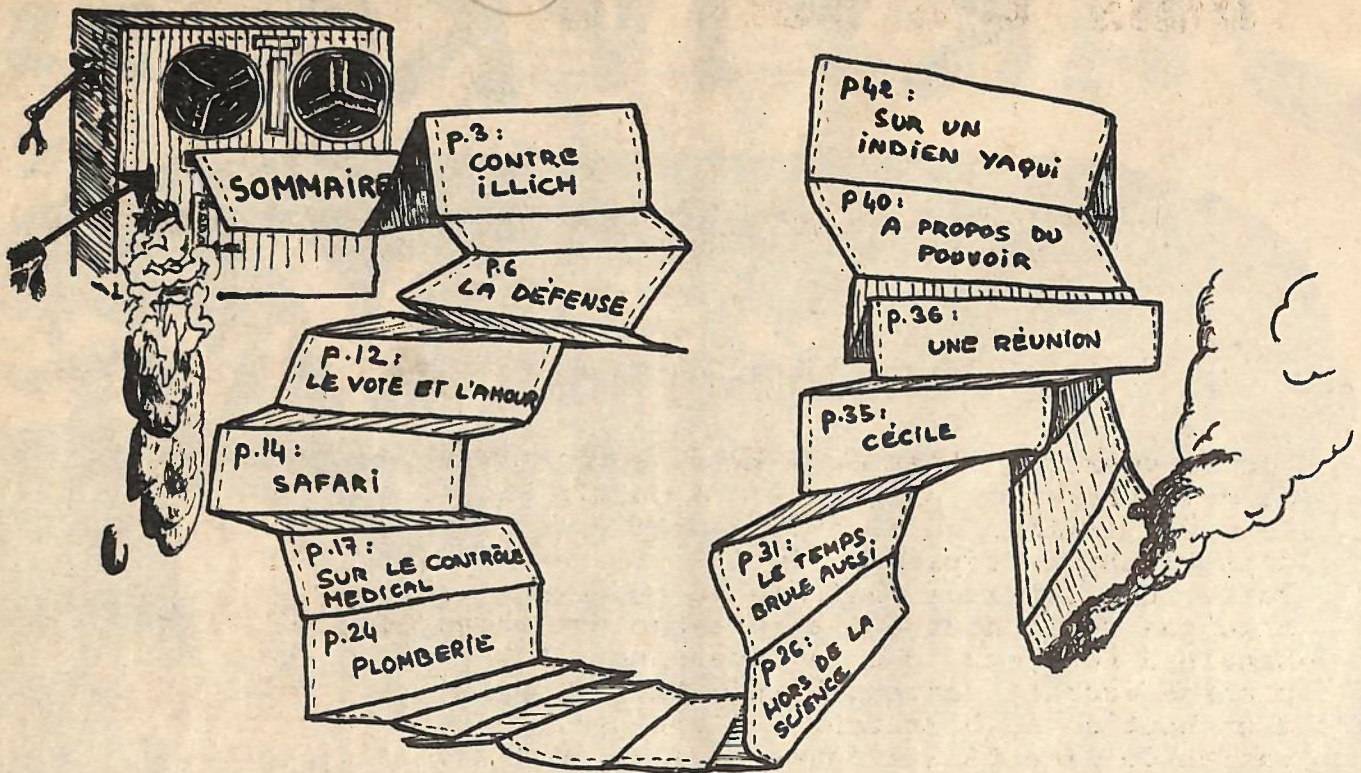 SOMMAIRE
p.3:
CONTRE
iLLiCH
p.6
LA DÉFENSE
p.12:
LE VOTE ET L'AMOUR
p.14:
SAFARi
p.17:
SUR LE CONTRÔLE
MEDICAL
p.24
PLOMBERIE
p26:
HORS DE LA
SCIENCE
p31:
LE TEMPS
BRULE AUSSi
p.35:
CÉCILE
p.36:
UNE RÉUNION
p40:
A PROPOS DU
POUVOIR
p42:
SUR UN
iNDIEN YAQUi